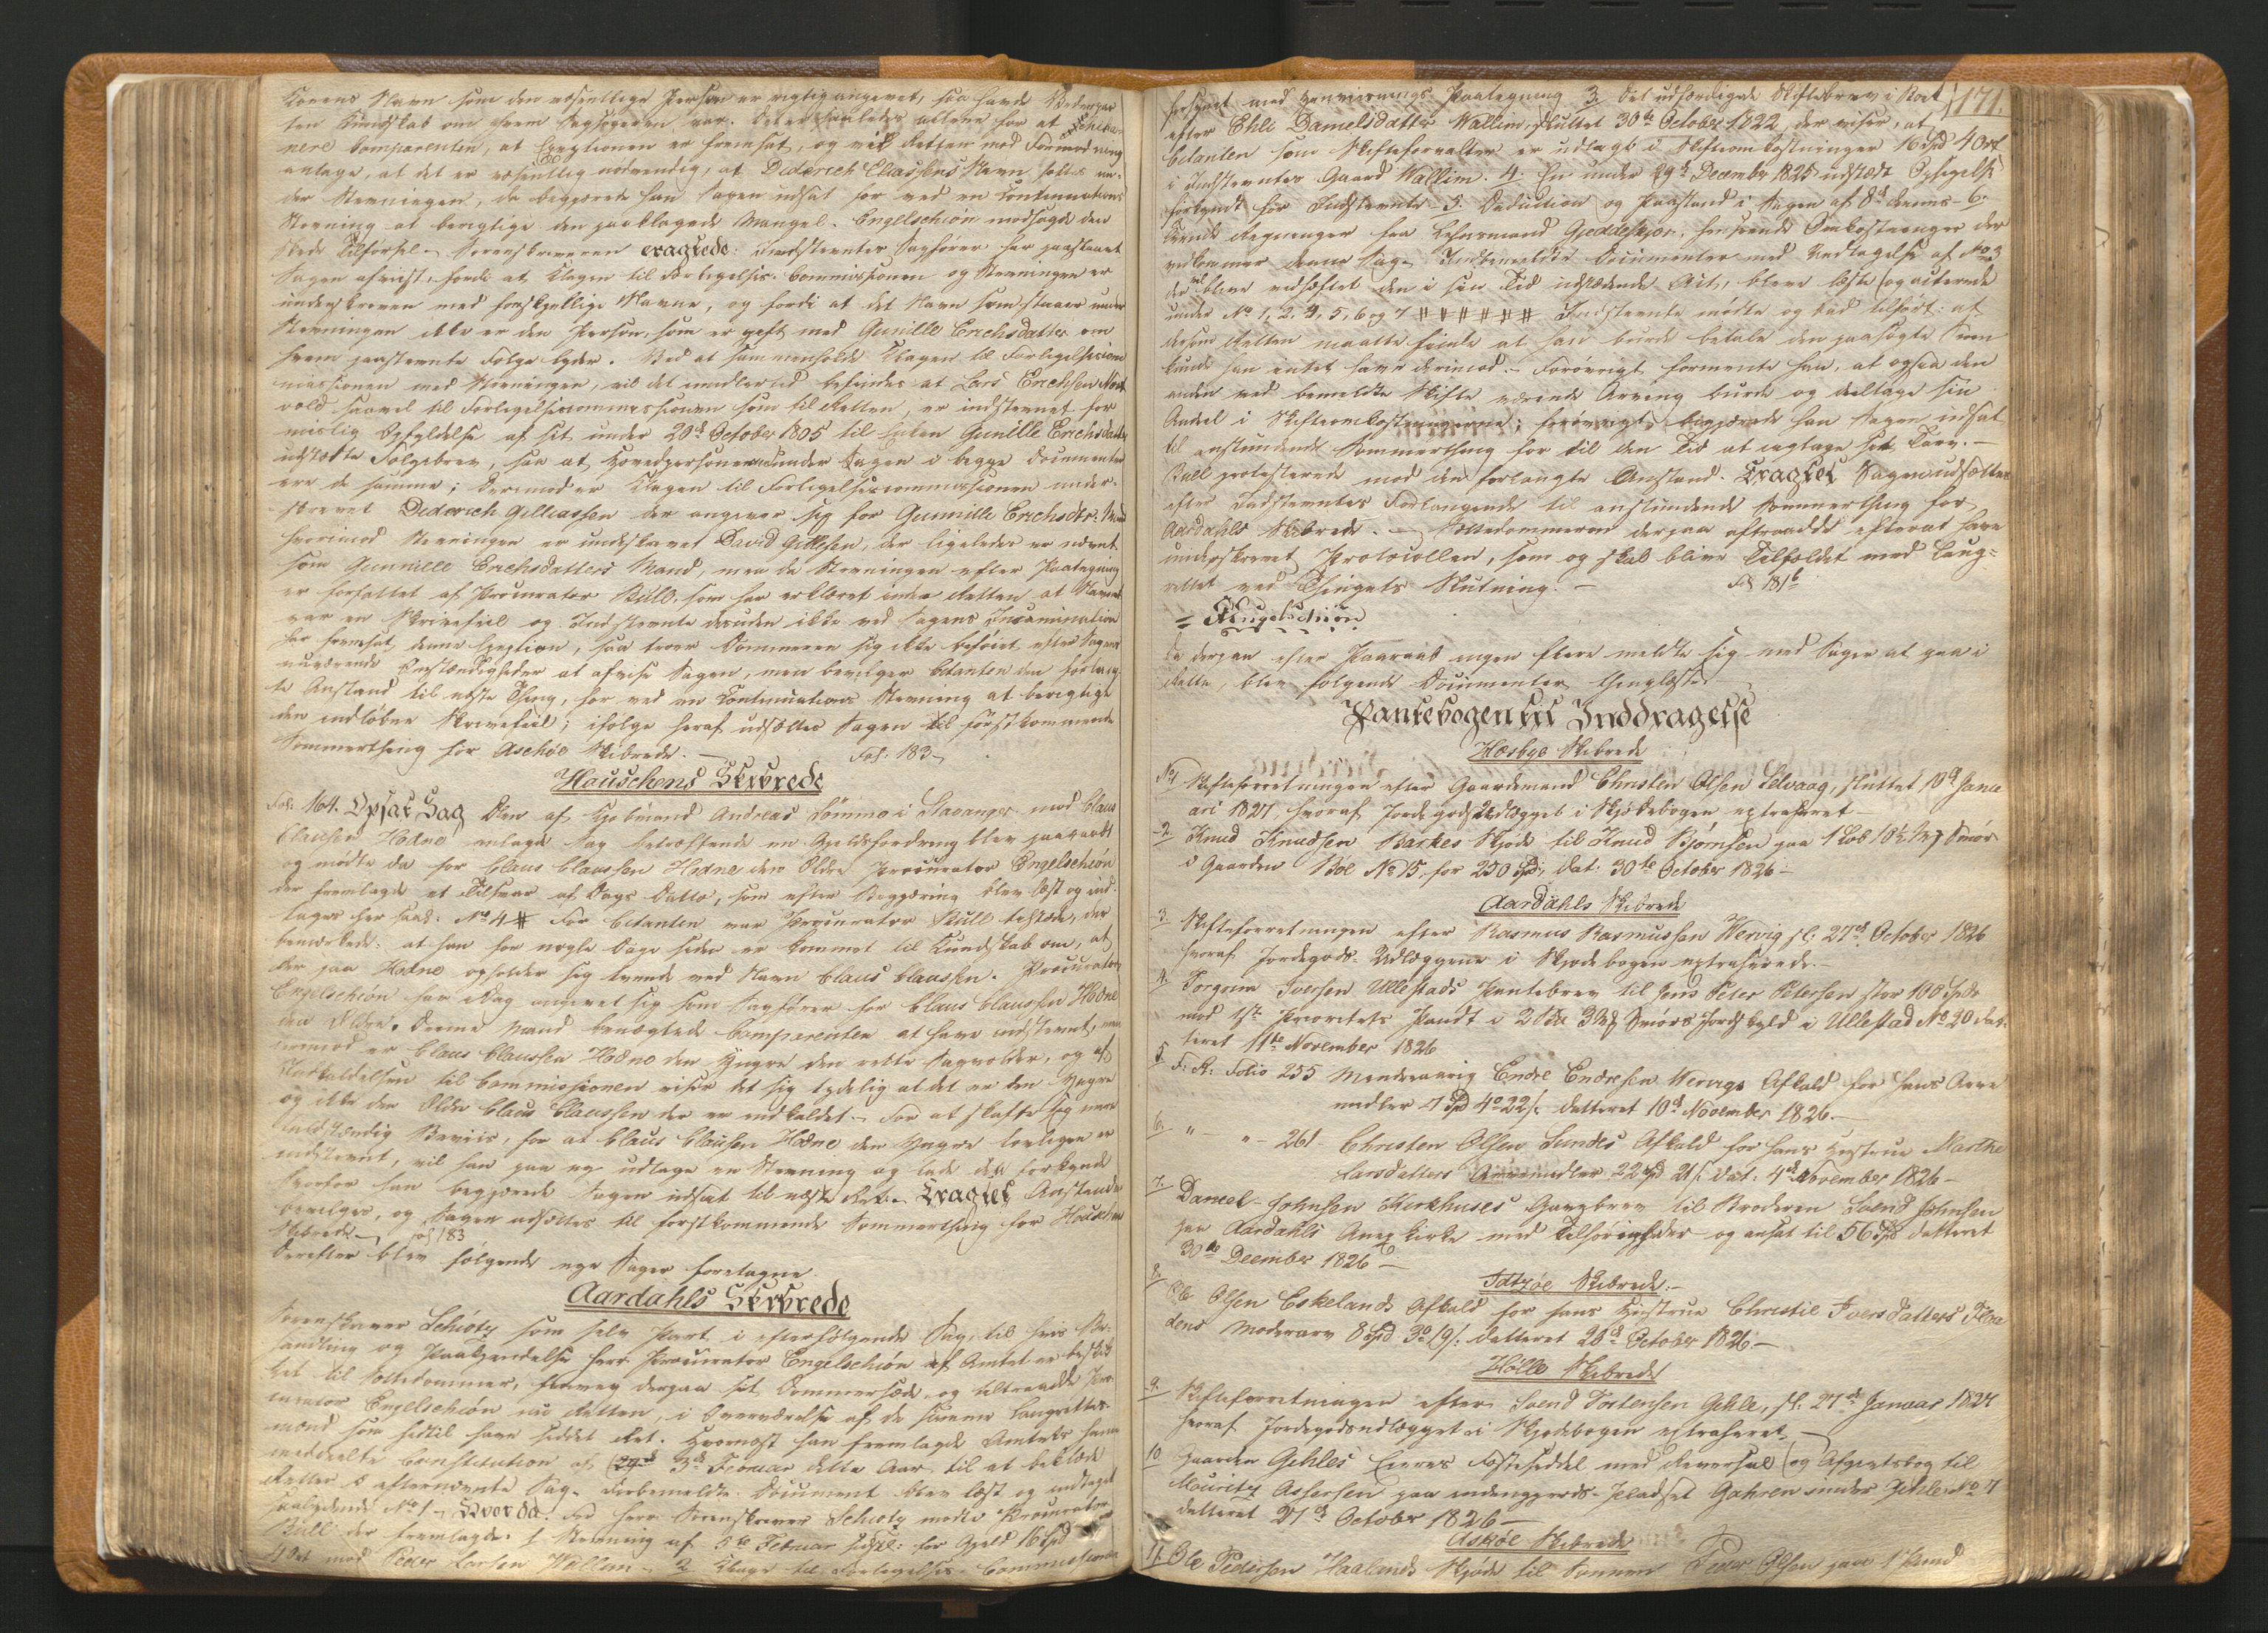 Konens Navn som den væsentlige Person er rigtig angivet, saa havde Vederpar
ten Kundskab om hvem Sagsøgeren var. Det er saaledes allene for at chika-
nere Comparenten, at Exeptionen er fremsat, og vil Retten mod Formodning
antage, at det er væsentlig nødvendig, at Diderich Eliassens Navn sættes un-
der Stevningen, da begjærede han Sagen udsat for ved en Continuations
Stevning at berigtige den paaklagede Mangel. Engelschiøn modsagde den
skede Tilførsel. Sorenskriveren eragtede: Indstevntes Sagfører har paastaaet
Sagen afviist, fordi at Klagen til Forligelses Commissionen og Stevningen er
underskreven med forskjellige Navne, og fordi at det Navn som staaer under
Stevningen ikke er den Person, som er gift med Gunille Erichsdatter om
hvem paastevnte Følge lyder. Ved at sammenholde Klagen til Forligelsescom
missionen med Stevningen, vil det imidlertid befindes at Lars Erichsen Nord
vold saavel til Forligelsescommissionen som til Retten, er indstevnet for
mislig Opfyldelse af sit under 20de October 1805 til Enken Gunille Erichsdatter
udstædte Følgebrev, saa at Hovedpersonerne under Sagen i begge Documenter
ere de samme; derimod er Klagen til Forligelsescommissionen under-
skrevet Diderich Gilliassen der angiver sig for Gunnille Erichsdtr. Mand
hvorimod Stevningen er underskrevet David Gillesen, der ligeledes er nævnt
som Gunnille Erichsdatters Mand, men da Stevningen efter Paategning
er forfattet af Procurator Bull, som har erklæret inden Retten at Navnet
var en Skrivefeil og Indstevnte desuden ikke ved Sagens Incamination
har fremsat denne Exeption, saa troer Dommeren sig ikke beføiet efter Sagens
nuværende Omstændigheder at afvise Sagen, men bevilger Citanten den forlang-
te Anstand til næste Thing, for ved en Continuations Stevning at berigtige
den indløbne Skrivefeil; ifølge heraf udsættes Sagen til førstkommende
Sommerthing for Aschøe Skibrede. — Fol: 183 —
Hauschens Skibrede
Fol. 164. Opsat Sag Den af Kjøbmand Andreas Sømme i Stavanger mod Claus
Clausen Hodne anlagde Sag betræffende en Gjeldsfordring blev paaraabt
og mødte da for Claus Claussen Hodne den Ældre Procurator Engelschiøn
der fremlagde et Tilsvar af Dags Datto, som efter Begjæring blev læst og ind-
tages her saal. No 4 # For Citanten var Procurator Bull tilstæde, der
bemærkede: at han for nogle Dage siden er kommet til Kundskab om, at
der paa Hodne opholder sig tvende ved Navn Claus Claussen. Procurator
Engelschiøn har i Dag angivet sig som Sagfører for Claus Claussen Hodne
den Ældre. Denne Mand benægtede Comparenten at have indstevnt, men
derimod er Claus Claussen Hodne den Yngre den rette Sagvolder, og af
Indkaldelsen til Commissionen viser det sig tydelig at det er den Yngre
og ikke den Ældre Claus Claussen der er indkaldet. For at skaffe sig mere
fuldstændig Beviis, for at Claus Clausen Hodne den Yngre lovligen er
indstevnt, vil han paa ny udtage en Stevning og lade den forkynde
hvorfor han begjærede Sagen udsat til næste Ret. Eragtet Anstanden
bevilges, og Sagen udsættes til førstkommende Sommerthing for Hauschen
Skibrede. — fol 183
Derefter blev følgende nye Sager foretagne.
Aardahls Skibrede
Sorenskriver Schiøtz som selv Part i efterfølgende Sag, til hvis Be-
handling og Paakjendelse Herr Procurator Engelschiøn af Amtet er beskik-
ket til Sættedommer, fraveg derpaa sit Dommersæde, og tiltraadte Pro-
curator Engelschiøn nu Retten, i Overværelse af de samme Laugrettes-
mænd som hidtil have siddet Ret. Hvornæst han fremlagde Amtets ham
meddeelte Constitution af 3de Februar dette Aar til at beklæde
Retten i efternævnte Sag. Forbemeldte Document blev læst og indtaget
saalydende No 1. — Hvorda. For Herr Sorenskriver Schiøtz mødte Procurator
Bull der fremlagde 1 Stevning af 5te Februar for Gjæld 16 Spd
4 Ort mod Peder Larsen Wallem. 2 Klage til Forligelses-Commissionen
171.
forsynet med Henviisnings Paategning 3. Det udfærdigede Skiftebrev i Boet
efter Ehli Danielsdatter Wallim, sluttet 30te October 1822, der viser, at
Citanten som Skifteforvalter er udlagt i Skifteomkostninger 16 Spd 4 Ort
i Indstevntes Gaard Wallim. 4. En under 29de December 1825 udstædt Opsigelse
forkyndt for Indstevnte 5. Deduction og Paastand i Sagen af 8de dennes 6.
tvende Regninger fra Lehnsmand Gjeddehjon, henhørende Omkostninger der
vedkommer denne Sag. Indbemeldte Documenter med Undtagelse af No 3
der blev vedhæftet den i sin Tid udstædende Act, bleve læste og acterede
under No 1, 2. 4, 5, 6 og 7 # # # # # # Indstevnte mødte og lod tilført: at
dersom Retten maatte finde at han burde betale den paasøgte Sum
kunde han intet have derimod. Forøvrigt formente han, at ogsaa den
anden ved bemeldte Skifte værende Arving burde og deeltage sin
Andeel i Skifteomkostningerne; forøvrigt begjærede han Sagen udsat
til anstundende Sommerthing for til den Tid at iagttage sit Tarv. —
Bull protesterede mod den forlangte Anstand. Eragtet Sagen udsættes
efter Indstevntes Forlangende til anstundende Sommerthing for
Aardahls Skibrede. — Sættedommeren derpaa aftraadde efterat have
underskrevet Protocollen, som og skal blive Tilfældet med Laug-
rettet ved Thingets Slutning. — Fol 181b
Engelschiøn
Da derpaa efter Paaraab ingen flere meldte sig med Sager at gaa i
Rette blev følgende Documenter Thinglæste
Pantebogen til Inddragelse
Hæsbye Skibrede
No 1 Skifteforretningen efter Gaardemand Christen Olsen Selvaag, sluttet 10de Janu
ari 1827, hvoraf Jordegods Udlægget i Skjødebogen extraheret —
2 Knud Knudsen Barkes Skjøde til Knud Bjørnsen paa 1 Løb 10½ Mrk Smør
i Gaarden Bøe No 15, for 250 Spd, dat: 30te October 1826 —
Aardahls Skibrede
3. Skifteforretningen efter Rasmus Rasmussen Wervig sl: 27de October 1826
hvoraf Jordegods-Udlæggene i Skjødebogen extraherede. —
4. Torgrim Iversen Ullestads Pantebrev til Jens Peter Petersen stor 100 Spd
mod 1ste Prioritets Pandt i 2 Spd 3 Mrk Smørs Jordskyld i Ullestad No 20 dat-
teret 11te November 1826
5 F: A: Folio 255 Mindreaarig Endre Endresen Wervigs Afkald for hans Arve
midler 7 Spd 4o 22/. datteret 10de November 1826. —
6. " — " — 261 — Christen Olsen Sundes Afkald for hans Hustrue Marthe
Larsdatters Arvemidler 22 Spd 21/. dat: 4de November 1826 —
7. Daniel Johnsen Kirkhuses Gavebrev til Broderen Svend Johnsen
paa Aardahls Anex Kirke med Tilhørigheder og ansat til 56 Spd datteret
30te Deember 1826 —
Idtzøe Skibrede. —
8. Ole Olsen Eskelands Afkald for hans Hustrue Christie Iversdatters Flaa
dens Mødrearv 8 Spd 3o 19/. datteret 28de October 1826. —
Hølle Skibrede
9. Skifteforretningen efter Svend Tostensen Gehle, sl: 27de Januar 1827
hvoraf Jordegodsudlægget i Skjødebogen extraheret. —
10 Gaarden Gehles Eieres Fæsteseddel med Reversal og Afgiftsbog til
Mouritz Assersen paa underliggende Pladset Gahren under Gehle No 7
datteret 27de October 1826 —
Askøe Skibrede
11. Ole Pedersen Haalands Skjøde til Sønnen Peder Olsen paa 1 Pund